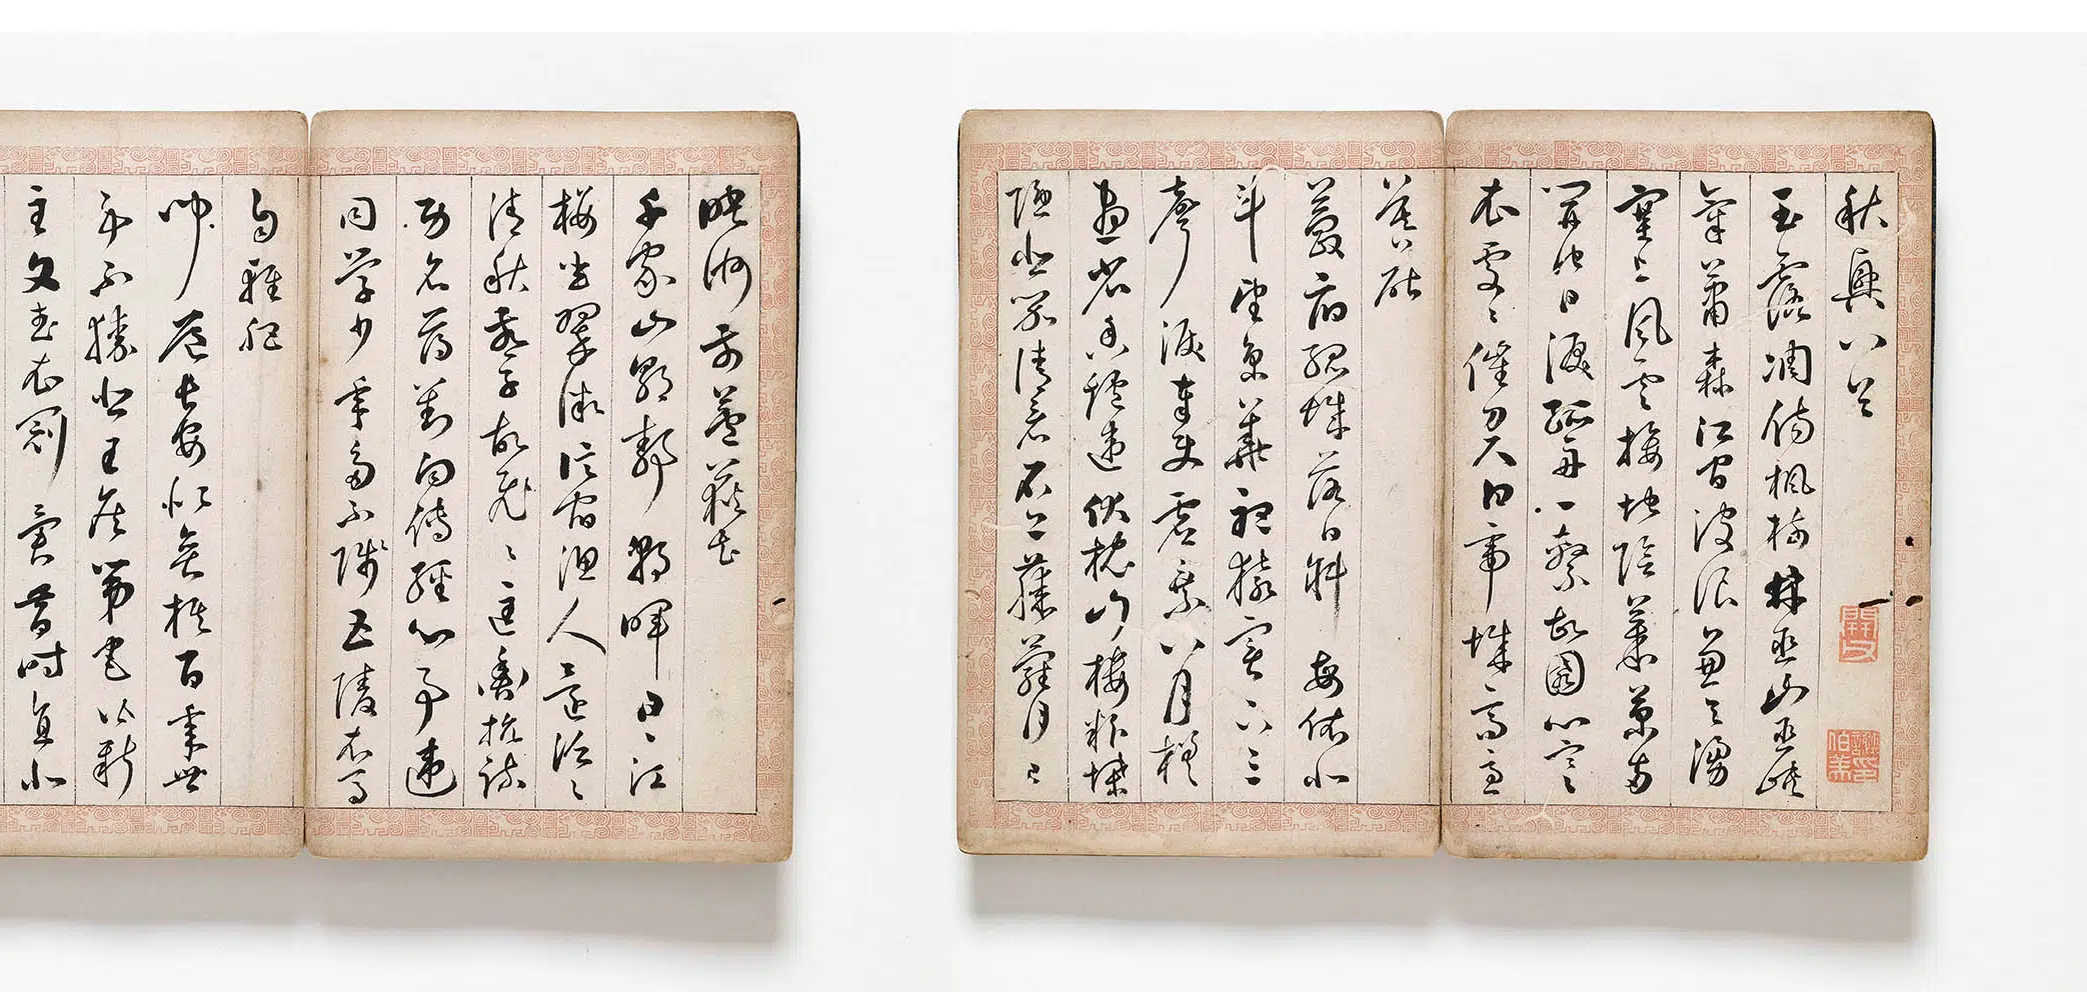 秋興八首
玉露凋傷楓樹林巫山巫峽
氣蕭森江間波浪兼天湧
塞上風雲接地陰叢菊兩
開他日淚孤舟一繫故園心寒
衣處々催刀尺白帝城高急
暮砧
夔府孤城落日斜每依北
斗望京華聽猿實下三
聲淚奉使虛乘八月槎
畫省香爐違伏枕山樓粉堞
隱悲笳請看石上藤蘿月已
映洲前蘆荻花
千家山郭靜朝暉日々江
樓坐翠微信宿漁人還泛々
清秋燕子故飛々匡衡抗疏
功名薄劉向傳經心事違
同學少年多不賤五陵衣馬
自輕肥
聞道長安似弈棋百年世
事不勝悲王侯第宅皆新
主文武衣冠異昔時直北